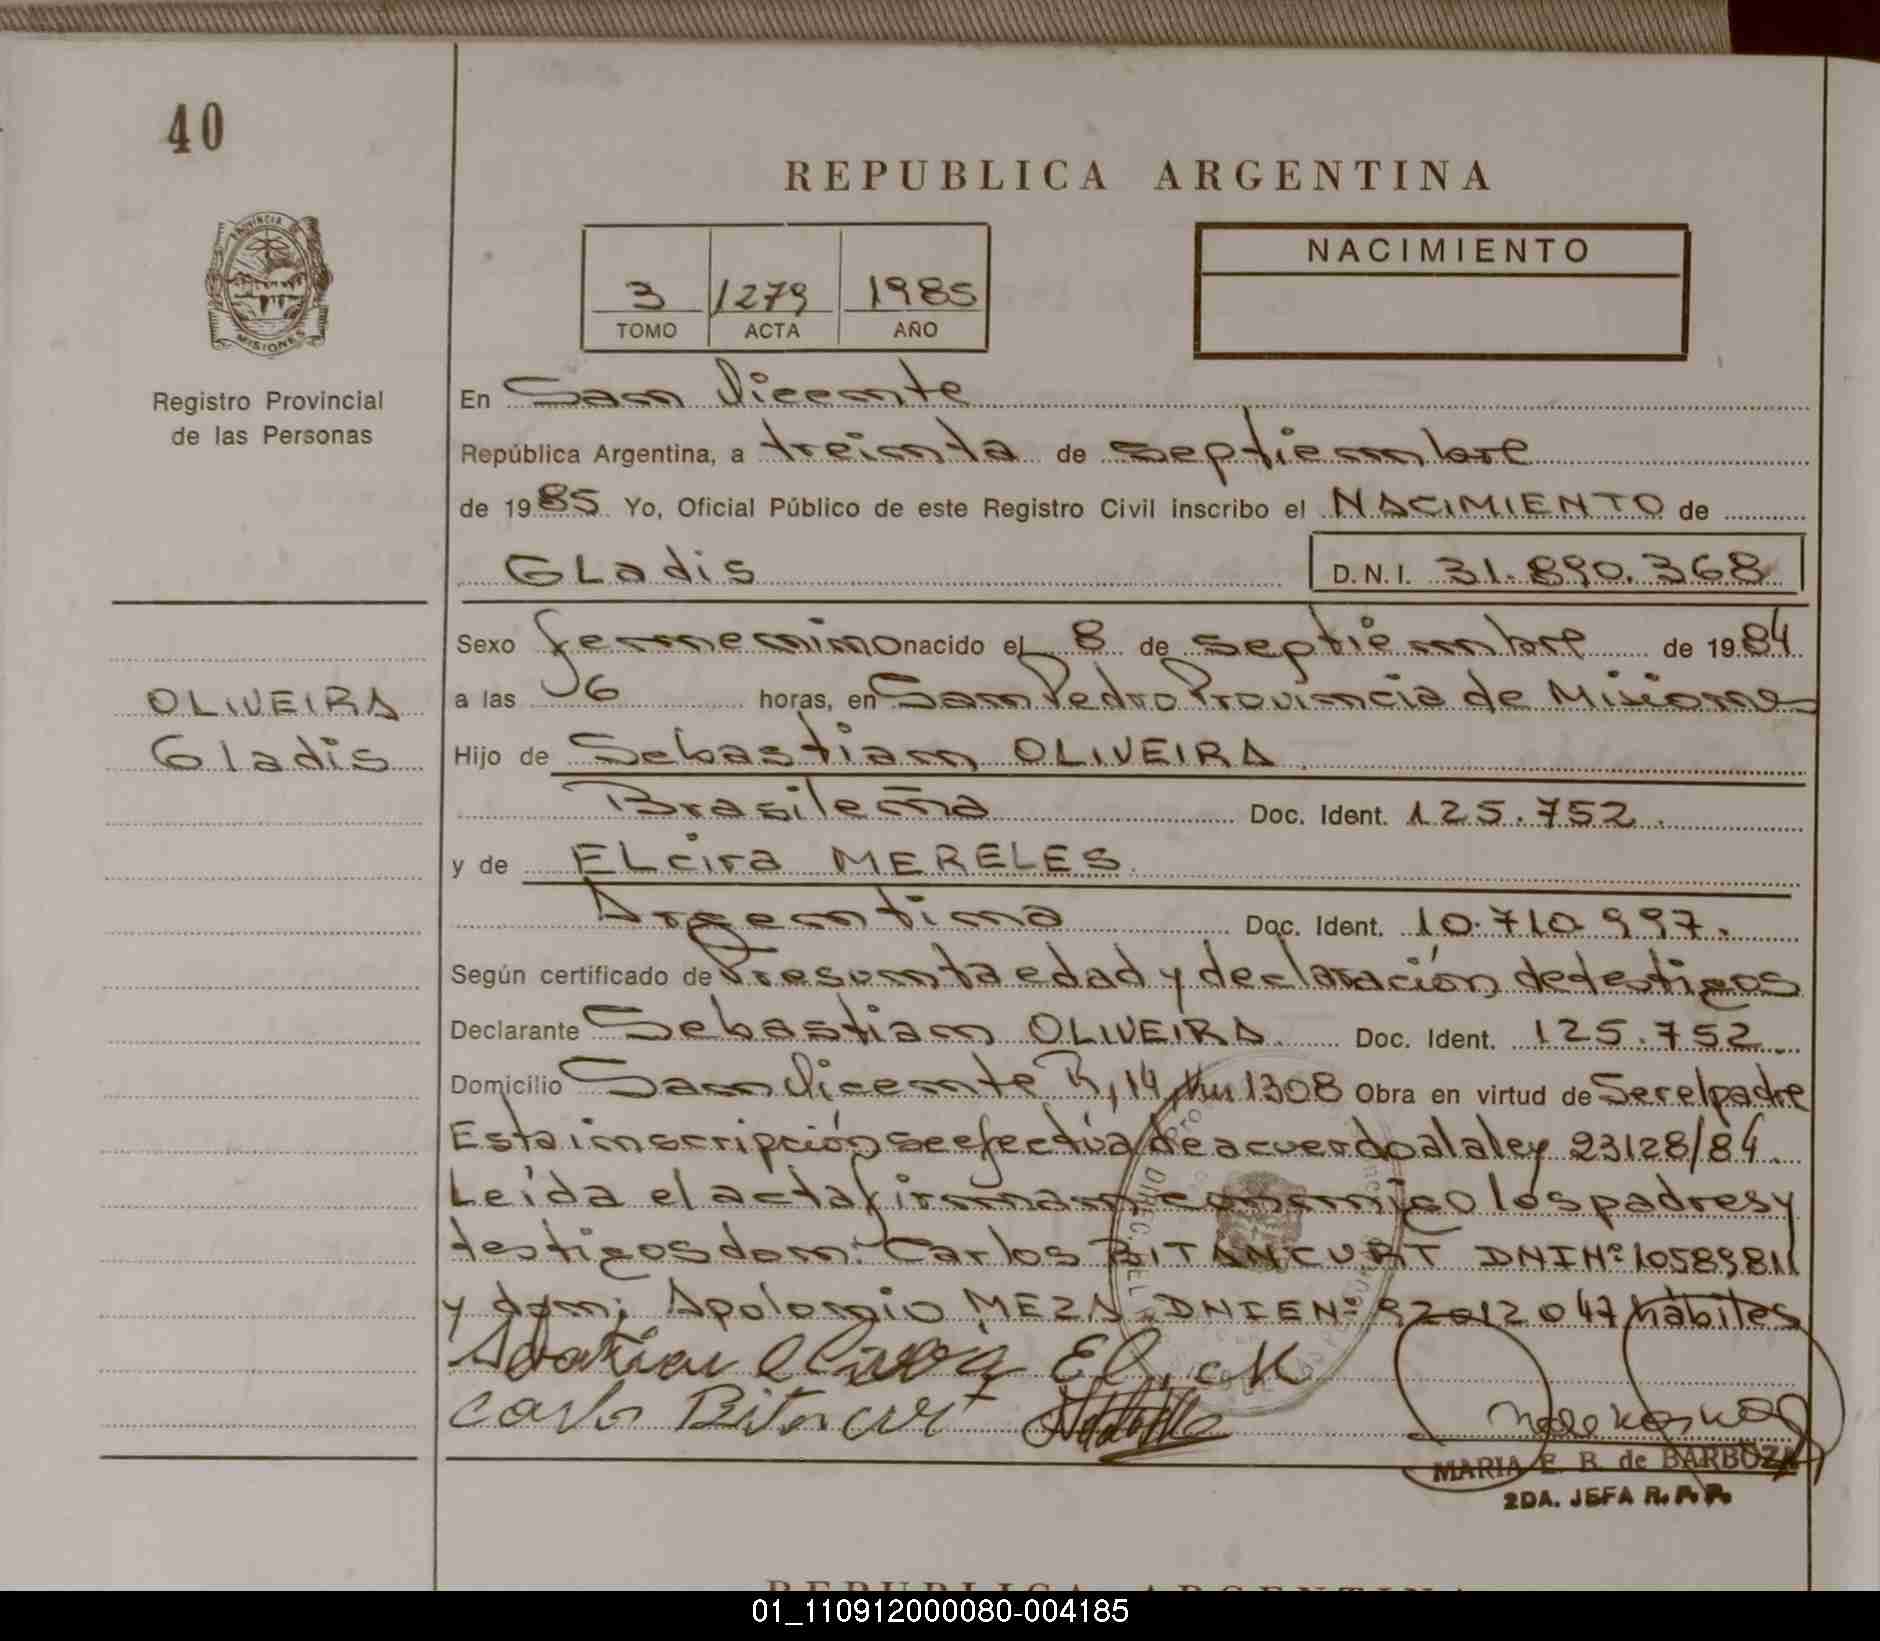 40
REPUBLICA ARGENTINA
PROVINCIA
MISIONES
3 1279 1985
TOMO ACTA AÑO
NACIMIENTO
Registro Provincial
de las Personas
En San Vicente
República Argentina, a treinta de septiembre
de 1985 Yo, Oficial Público de este Registro Civil inscribo el NACIMIENTO de
GLadis D.N.I. 31.890.368
Sexo femenino nacido el 8 de septiembre de 1984
OLIVEIRA
Gladis
a las 6 horas, en San Pedro Provincia de Misiones
Hijo de Sebastian OLIVEIRA
Brasileña Doc. Ident. 125.752.
y de ELcira MERELES.
Argentina Doc. Ident. 10.710.997.
Según certificado de Presunta edad y declaración de testigos
Declarante Sebastian OLIVEIRA. Doc. Ident. 125.752.
Domicilio San Vicente R, 14, Km 1308 Obra en virtud de Ser el padre
Esta inscripción se efectúa de acuerdo a la ley 23128/84.
Leída el acta firman conmigo los padres y
testigos don: Carlos BITANCURT DNI Nº 10589811
y don; Apolonio MEZA DNIE Nº 92012047 hábiles
Carlos Bitancurt
MARIA E. B. de BARBOZA
2DA. JEFA R. P. P.
REPUBLICA ARGENTINA
01_110912000080-004185